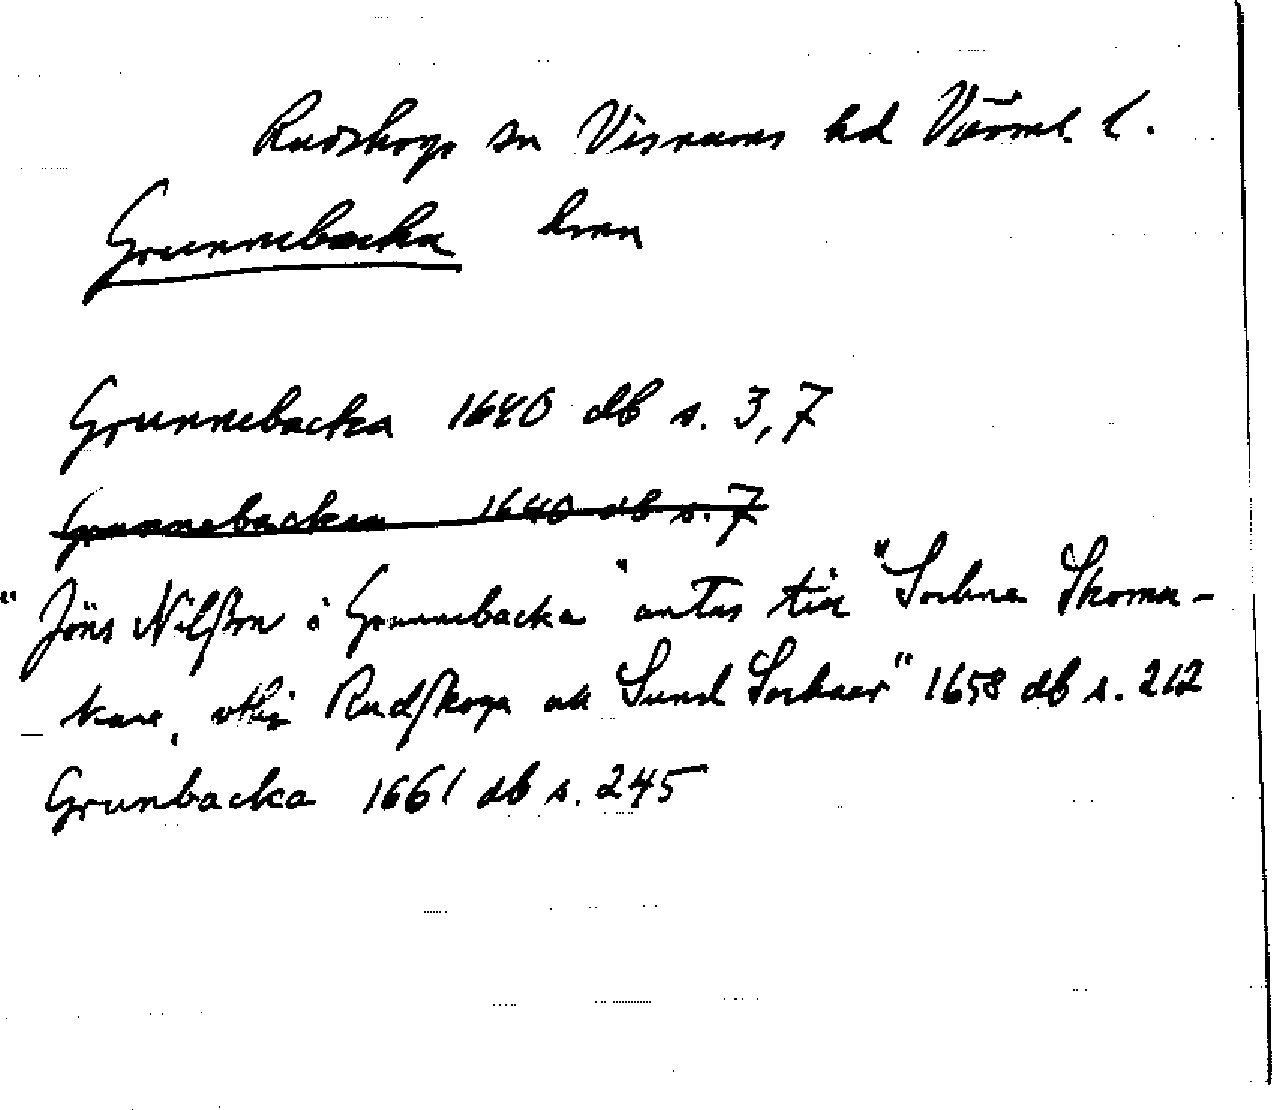 Rudskoga sn Visnums hd Värml. l.
Grunnebacka hmn
Grunnebacka 1640 db s. 3, 7
Grunnebacken 1640 db s. 7
" Jöns Nilßon i Grunnebacka " antas till "Sochne Skoma-
kare, uthi Rudskoga ok Sund Sochner" 1658 db s. 212
Grunbacka 1661 db s. 245